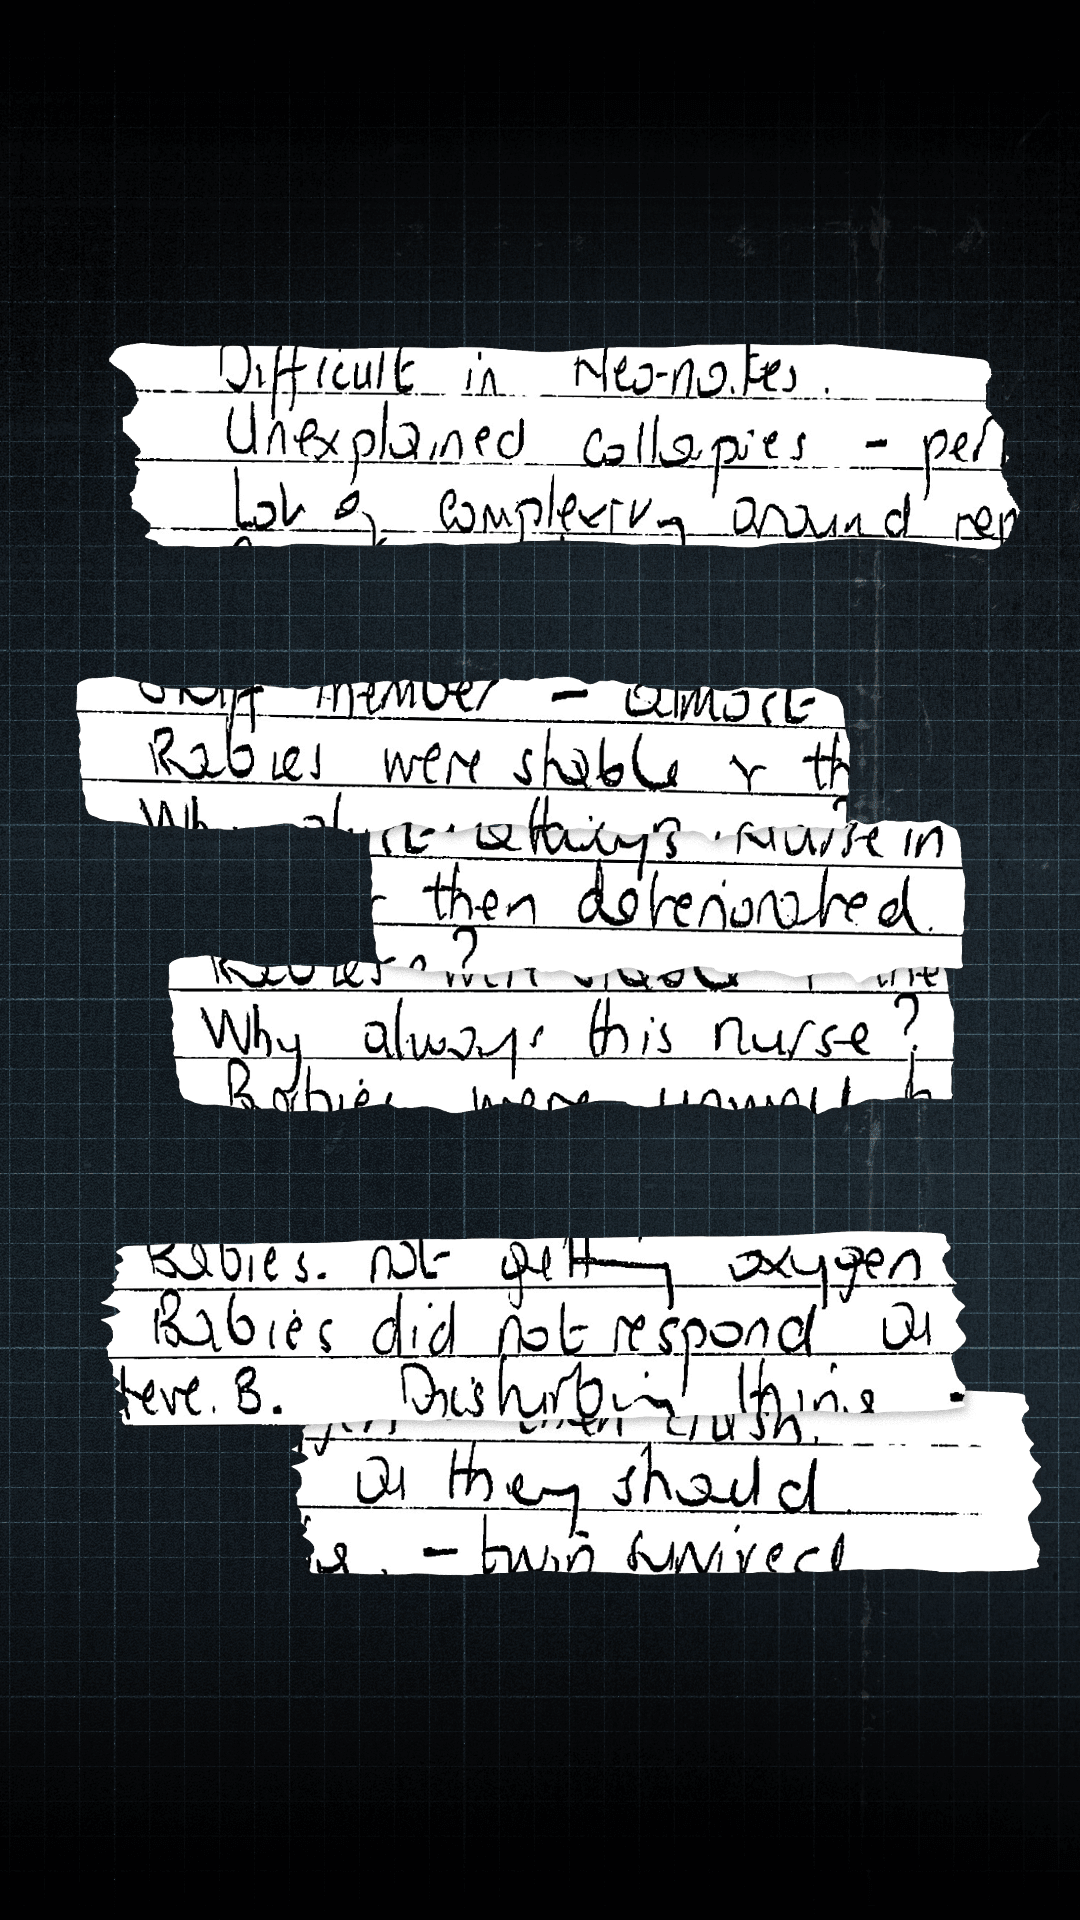 Difficult in Neo-nates.
Unexplained collapses - per
Lot of complexity around rep
Staff member - almost
Babies were stable & th
Why
nurse in
- then deteriorated.
?
Why always this nurse?
Babies were unwell b
Babies. not getting oxygen
Babies did not respond as
teve. B. Disturbing thing -
crash.
as they should.
- twin survived